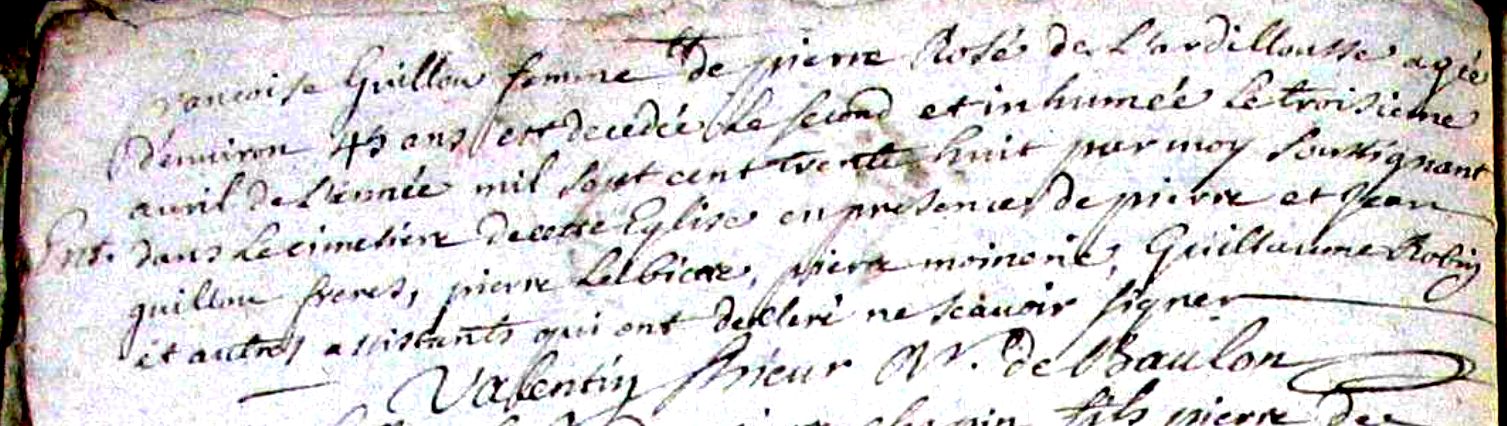 françoise Guillou femme de pierre Rosé de L'ardillousse agée
d'enuiron 45 ans est decedée le second et inhumée le troisieme
auril de l'année mil sept cent trente huit par moy soussignant
Ent. dans le cimetiere de cette Eglise en presence de pierre et Jean
guillou freres, pierre pierre moinerie, Guillaume Robin
et autres assistants qui ont decleré ne scauoir signer
Valentin Prieur Rr. de Baulon
fils pierre de